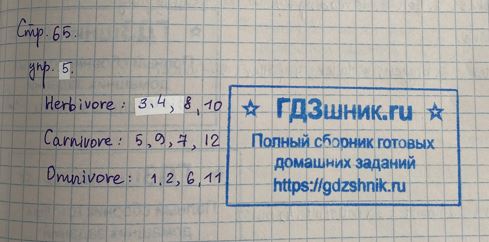 Стр. 65.
упр. 5.
Herbivore: 3,4, 8,10
Carnivore: 5,9,7,12
Omnivore: 1,2,6,11
☆ ГДЗшник.ru ☆
Полный сборник готовых
домашних заданий
https://gdzshnik.ru